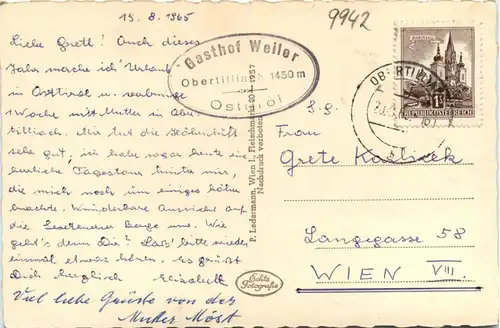 19.8.1965
9942
Liebe Gretl! Auch dieses
Jahr mache ich Urlaub
in Osttirol u. verbringe
1 Woche mit Mutter in Ober-
tilliach. Mir tut die Höhenluft
sehr gut, ich habe sogar heute ein
herrliche Tagestour hinter mir,
die mich noch um einiges höher
brachte. Wunderbare Aussicht auf
die Lesachtaler Berge usw. Wie
geht's denn Dir? Laß bitte wieder
einmal etwas hören. Es grüßt
Dich herzlich Elisabeth
Viel liebe Grüsse von der
Mutter Möst
Gasthof Weiler
Obertilliach 1450 m
Osttirol
P. Ledermann, Wien I., Fleischmarkt 20 - 1957
Nachdruck verboten
Echte
Fotografie
OBERTILLIACH
MARIAZELL
REPUBLIK ÖSTERREICH
S.g.
Frau
Grete
Langegasse 58
WIEN VIII.